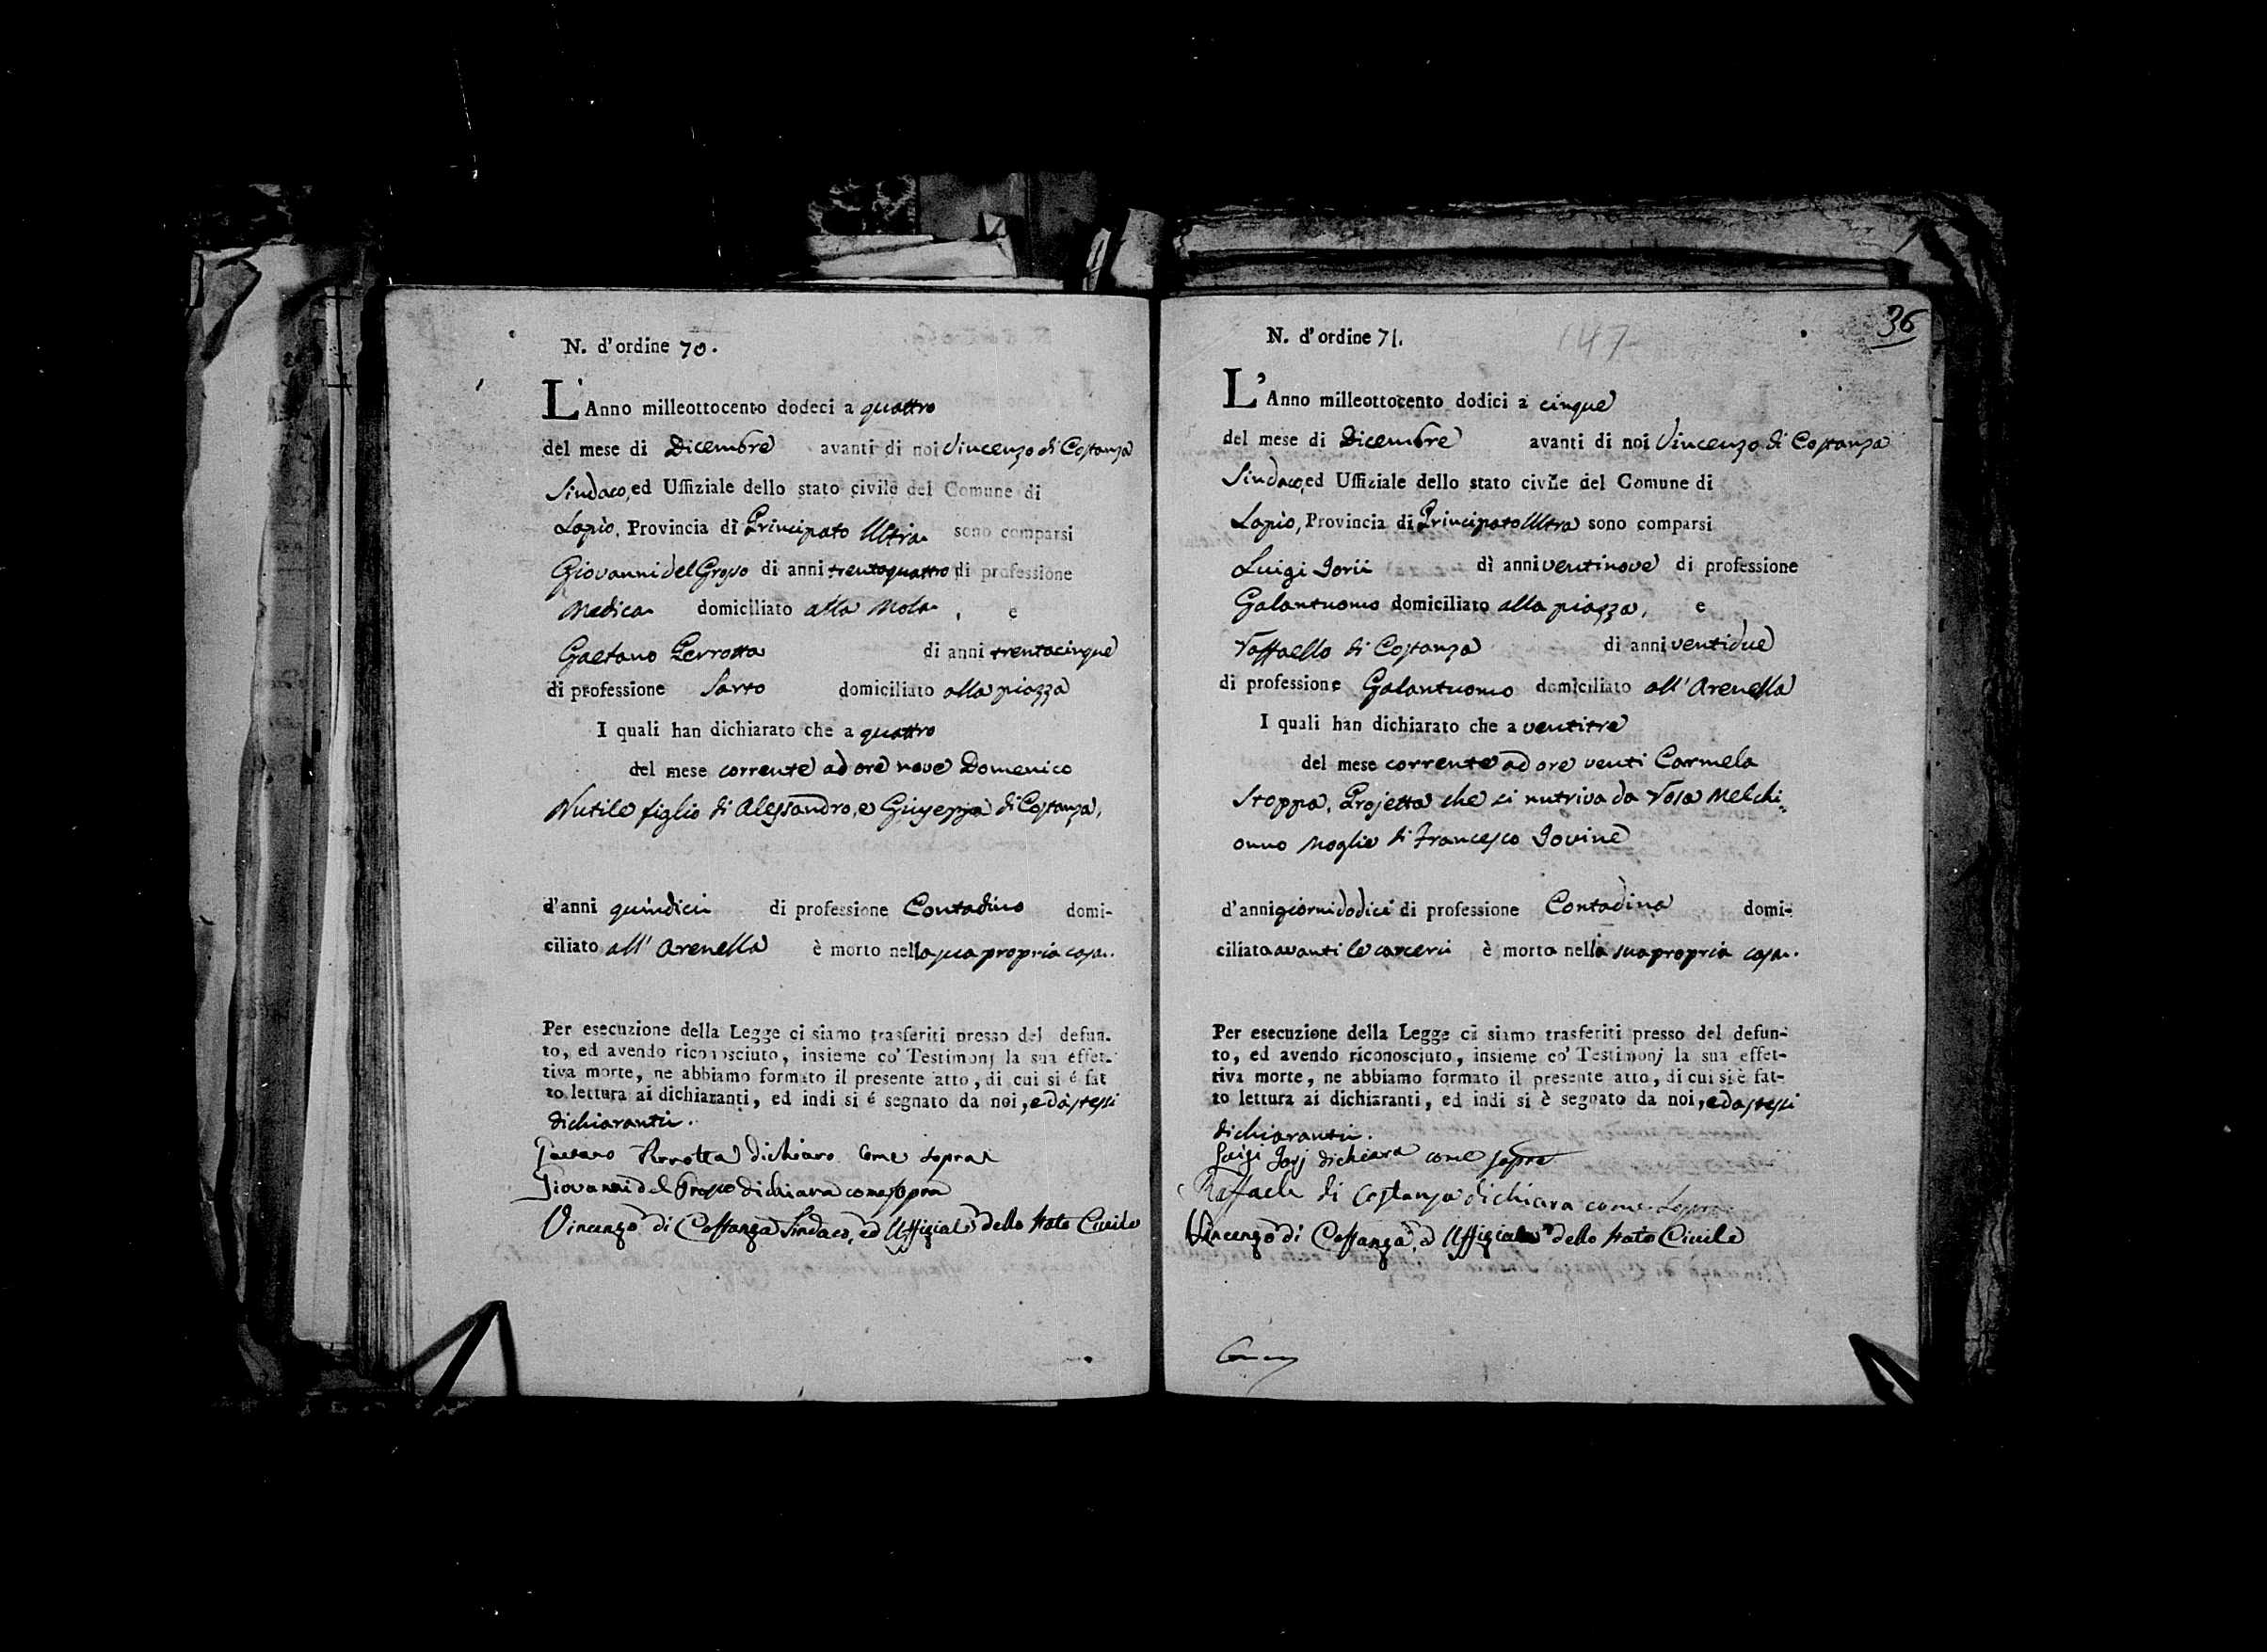 N. d'ordine 70.
L'Anno milleottocento dodeci a quattro
del mese di Dicembre avanti di noi Vincenzo di Costanza
Sindaco, ed Uffiziale dello stato civile del Comune di
Lapio, Provincia di Principato Ultra sono comparsi
Giovanni del Grosso di anni trentaquattro di professione
Medico domiciliato alla Mola, e
Gaetano Perrotta di anni trentacinque
di professione Sarto domiciliato alla piazza
I quali han dichiarato che a quattro
del mese corrente ad ore nove Domenico
Nutile figlio di Alessandro, e Giuseppa di Costanza,
d'anni quindici di professione Contadino domi-
ciliato all' Arenella è morto nella sua propria casa.
Per esecuzione della Legge ci siamo trasferiti presso del defun-
to, ed avendo riconosciuto, insieme co' Testimonj la sua effet-
tiva morte, ne abbiamo formato il presente atto, di cui si é fat
to lettura ai dichiaranti, ed indi si é segnato da noi, e da stessi
dichiaranti.
Gaetano Perrotta dichiaro come sopra
Giovanni del Grosso dichiara come sopra
Vincenzo di Costanza Sindaco, ed Uffiziale dello stato Civile
36
N. d'ordine 71.
147
L'Anno milleottocento dodici a cinque
del mese di Dicembre avanti di noi Vincenzo di Costanza
Sindaco, ed Uffiziale dello stato civile del Comune di
Lapio, Provincia di Principato Ultra sono comparsi
Luigi Iorii di anni ventinove di professione
Galantuomo domiciliato alla piazza, e
Raffaello di Costanza di anni ventidue
di professione Galantuomo domiciliato all' Arenella
I quali han dichiarato che a ventitre
del mese corrente ad ore venti Carmela
Stoppa, Projetta che si nutriva da Rosa Melchi=
onno Moglie di Francesco Iovine
d'anni giorni dodici di professione Contadina domi-
ciliata avanti le carceri è morta nella sua propria casa.
Per esecuzione della Legge ci siamo trasferiti presso del defun-
to, ed avendo riconosciuto, insieme co' Testimonj la sua effet-
tiva morte, ne abbiamo formato il presente atto, di cui si è fat-
to lettura ai dichiaranti, ed indi si è segnato da noi, e da stessi
dichiaranti.
Luigi Iorj dichiara come sopra
Raffaele di Costanza dichiara come sopra
Vincenzo di Costanza, ed Uffiziale dello stato Civile